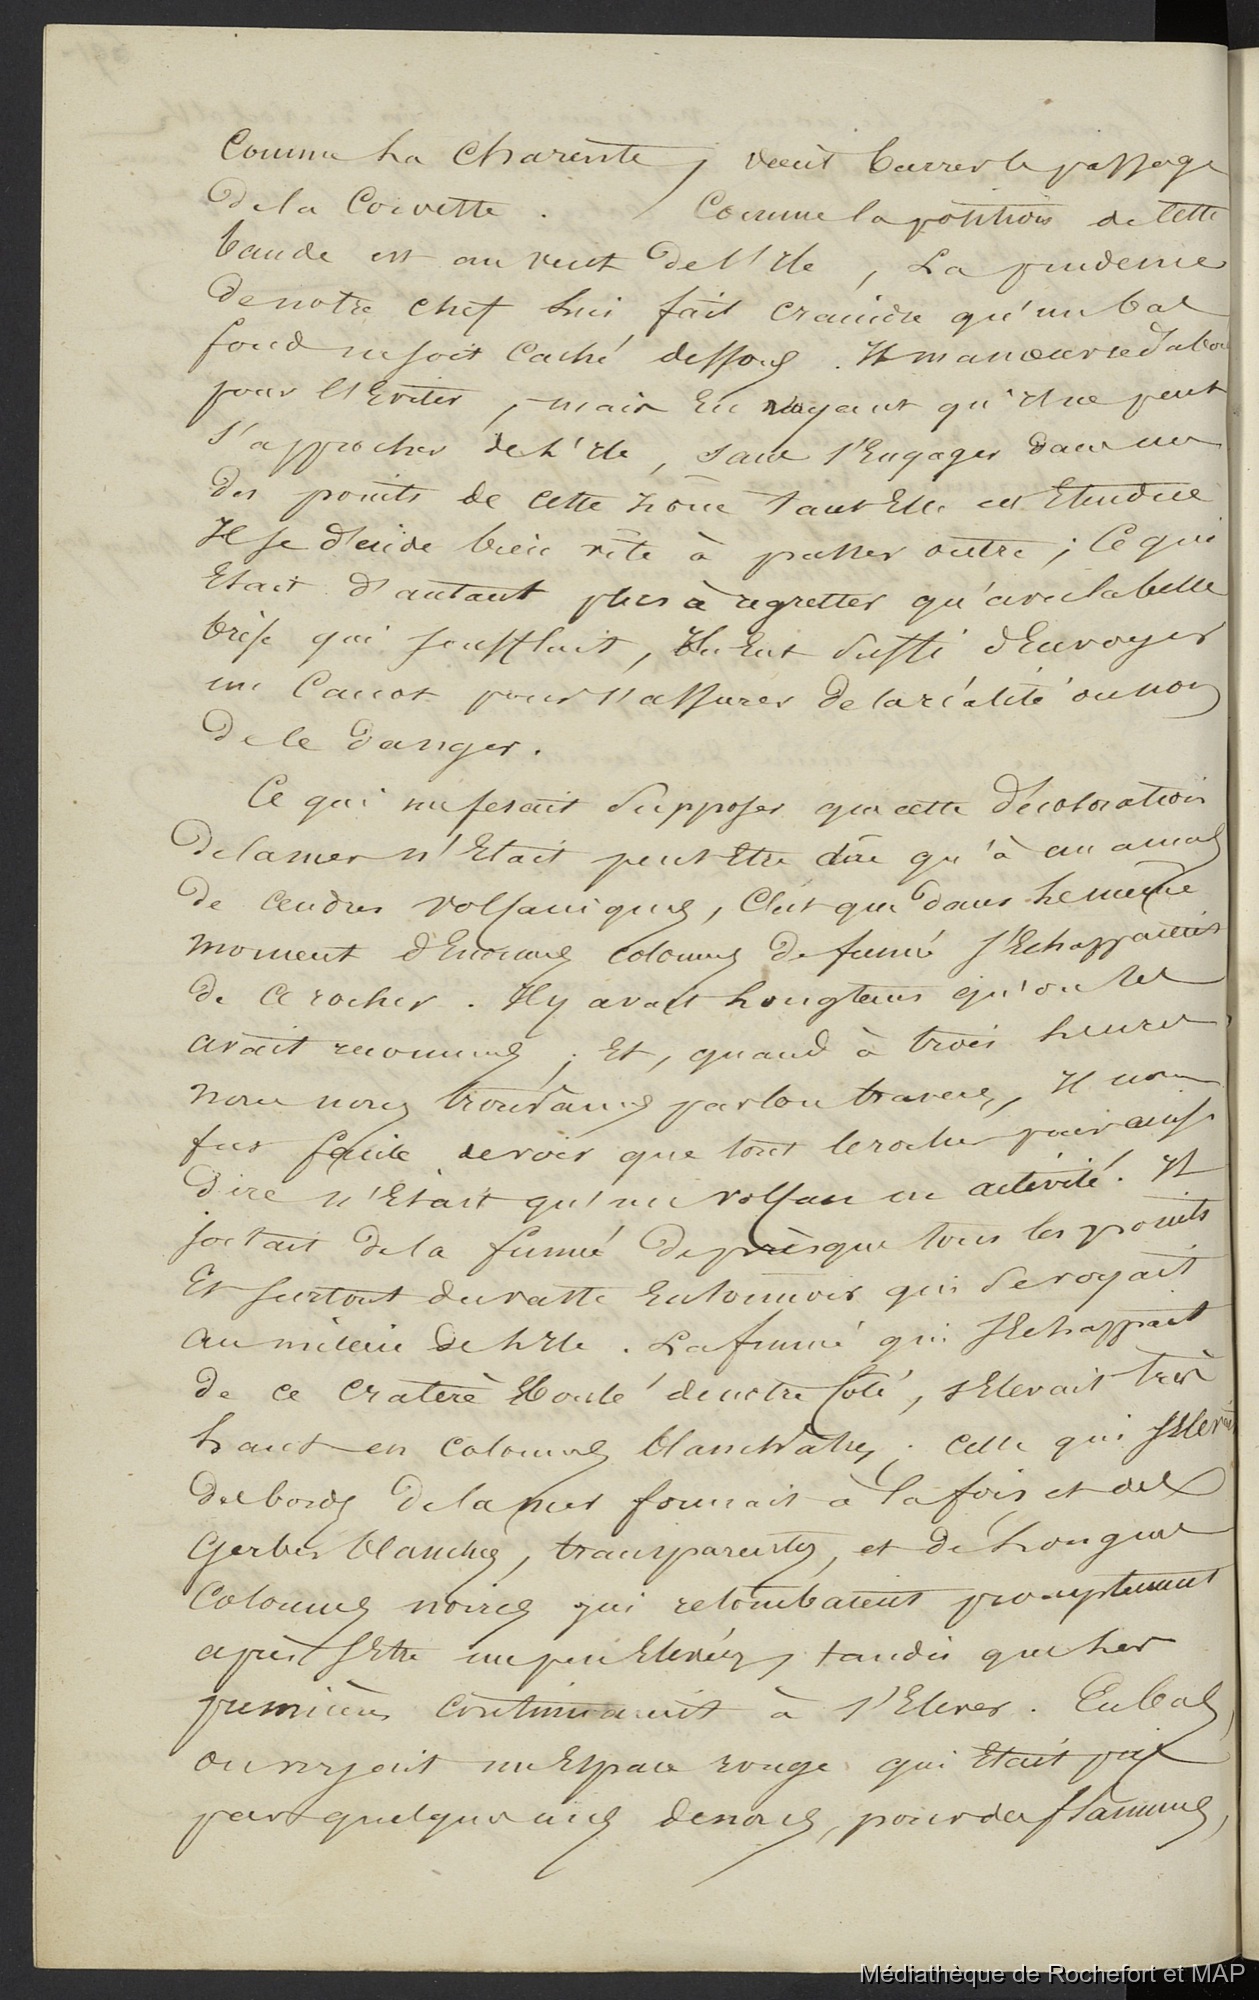 Comme La Charente, vient barrer le passage
De la Corvette. Comme la position de Cette
bande est au vent De l'Ile, La prudence
De notre chef Lui fait craindre qu'un bas
fond ne soit Caché dessous. Il manoeuvre d'abord
pour l'Eviter, mais En voyant qu'il ne peut
S'approcher de L'Ile, sans s'Engager dans un
des points de cette Zône tant Elle est Etendue
Il se décide bien vite à passer outre; Ce qui
Etait d'autant plus à regretter qu'avec la belle
brise qui soufflait, Il eut suffi d'Envoyer
un Canot pour s'assurer De la réalité ou non
De le Danger.
Ce qui me ferait Supposer que cette Décoloration
De la mer n'Etait peut Etre dûe qu'à un amas
De Cendres Volcaniques, C'est que Dans Le même
moment d'Enormes Colonnes De fumée s'Echappaient
De Ce rocher. Il y avait Longtems qu'on les
avait reconnues; Et, quand à trois heures
nous nous trouvâmes par son travers, Il nous
fut facile de voir que tout le rocher pour ainsi
Dire n'Etait qu'un volcan en activité. Il
sortait De la fumée De presque tous les points
Et surtout du vaste Entonnoir qui Se voyait
au milieu de L'Ile. La fumée qui s'Echappait
de ce cratère Eboulé de notre Coté, s'Elevait très
haut en Colonnes blanchâtres; Celle qui s'Elevait
Des bords De la mer formait à la fois et des
Gerbes blanches, transparentes, et De Longues
Colonnes noires qui retombaient promptement
après s'Etre un peu Elevées, tandis que Les
premières Continuaient à s'Elever. En bas,
on voyait un Espace rouge qui Etait pris
par quelques uns de nous, pour des flammes,
Médiathèque de Rochefort et MAP